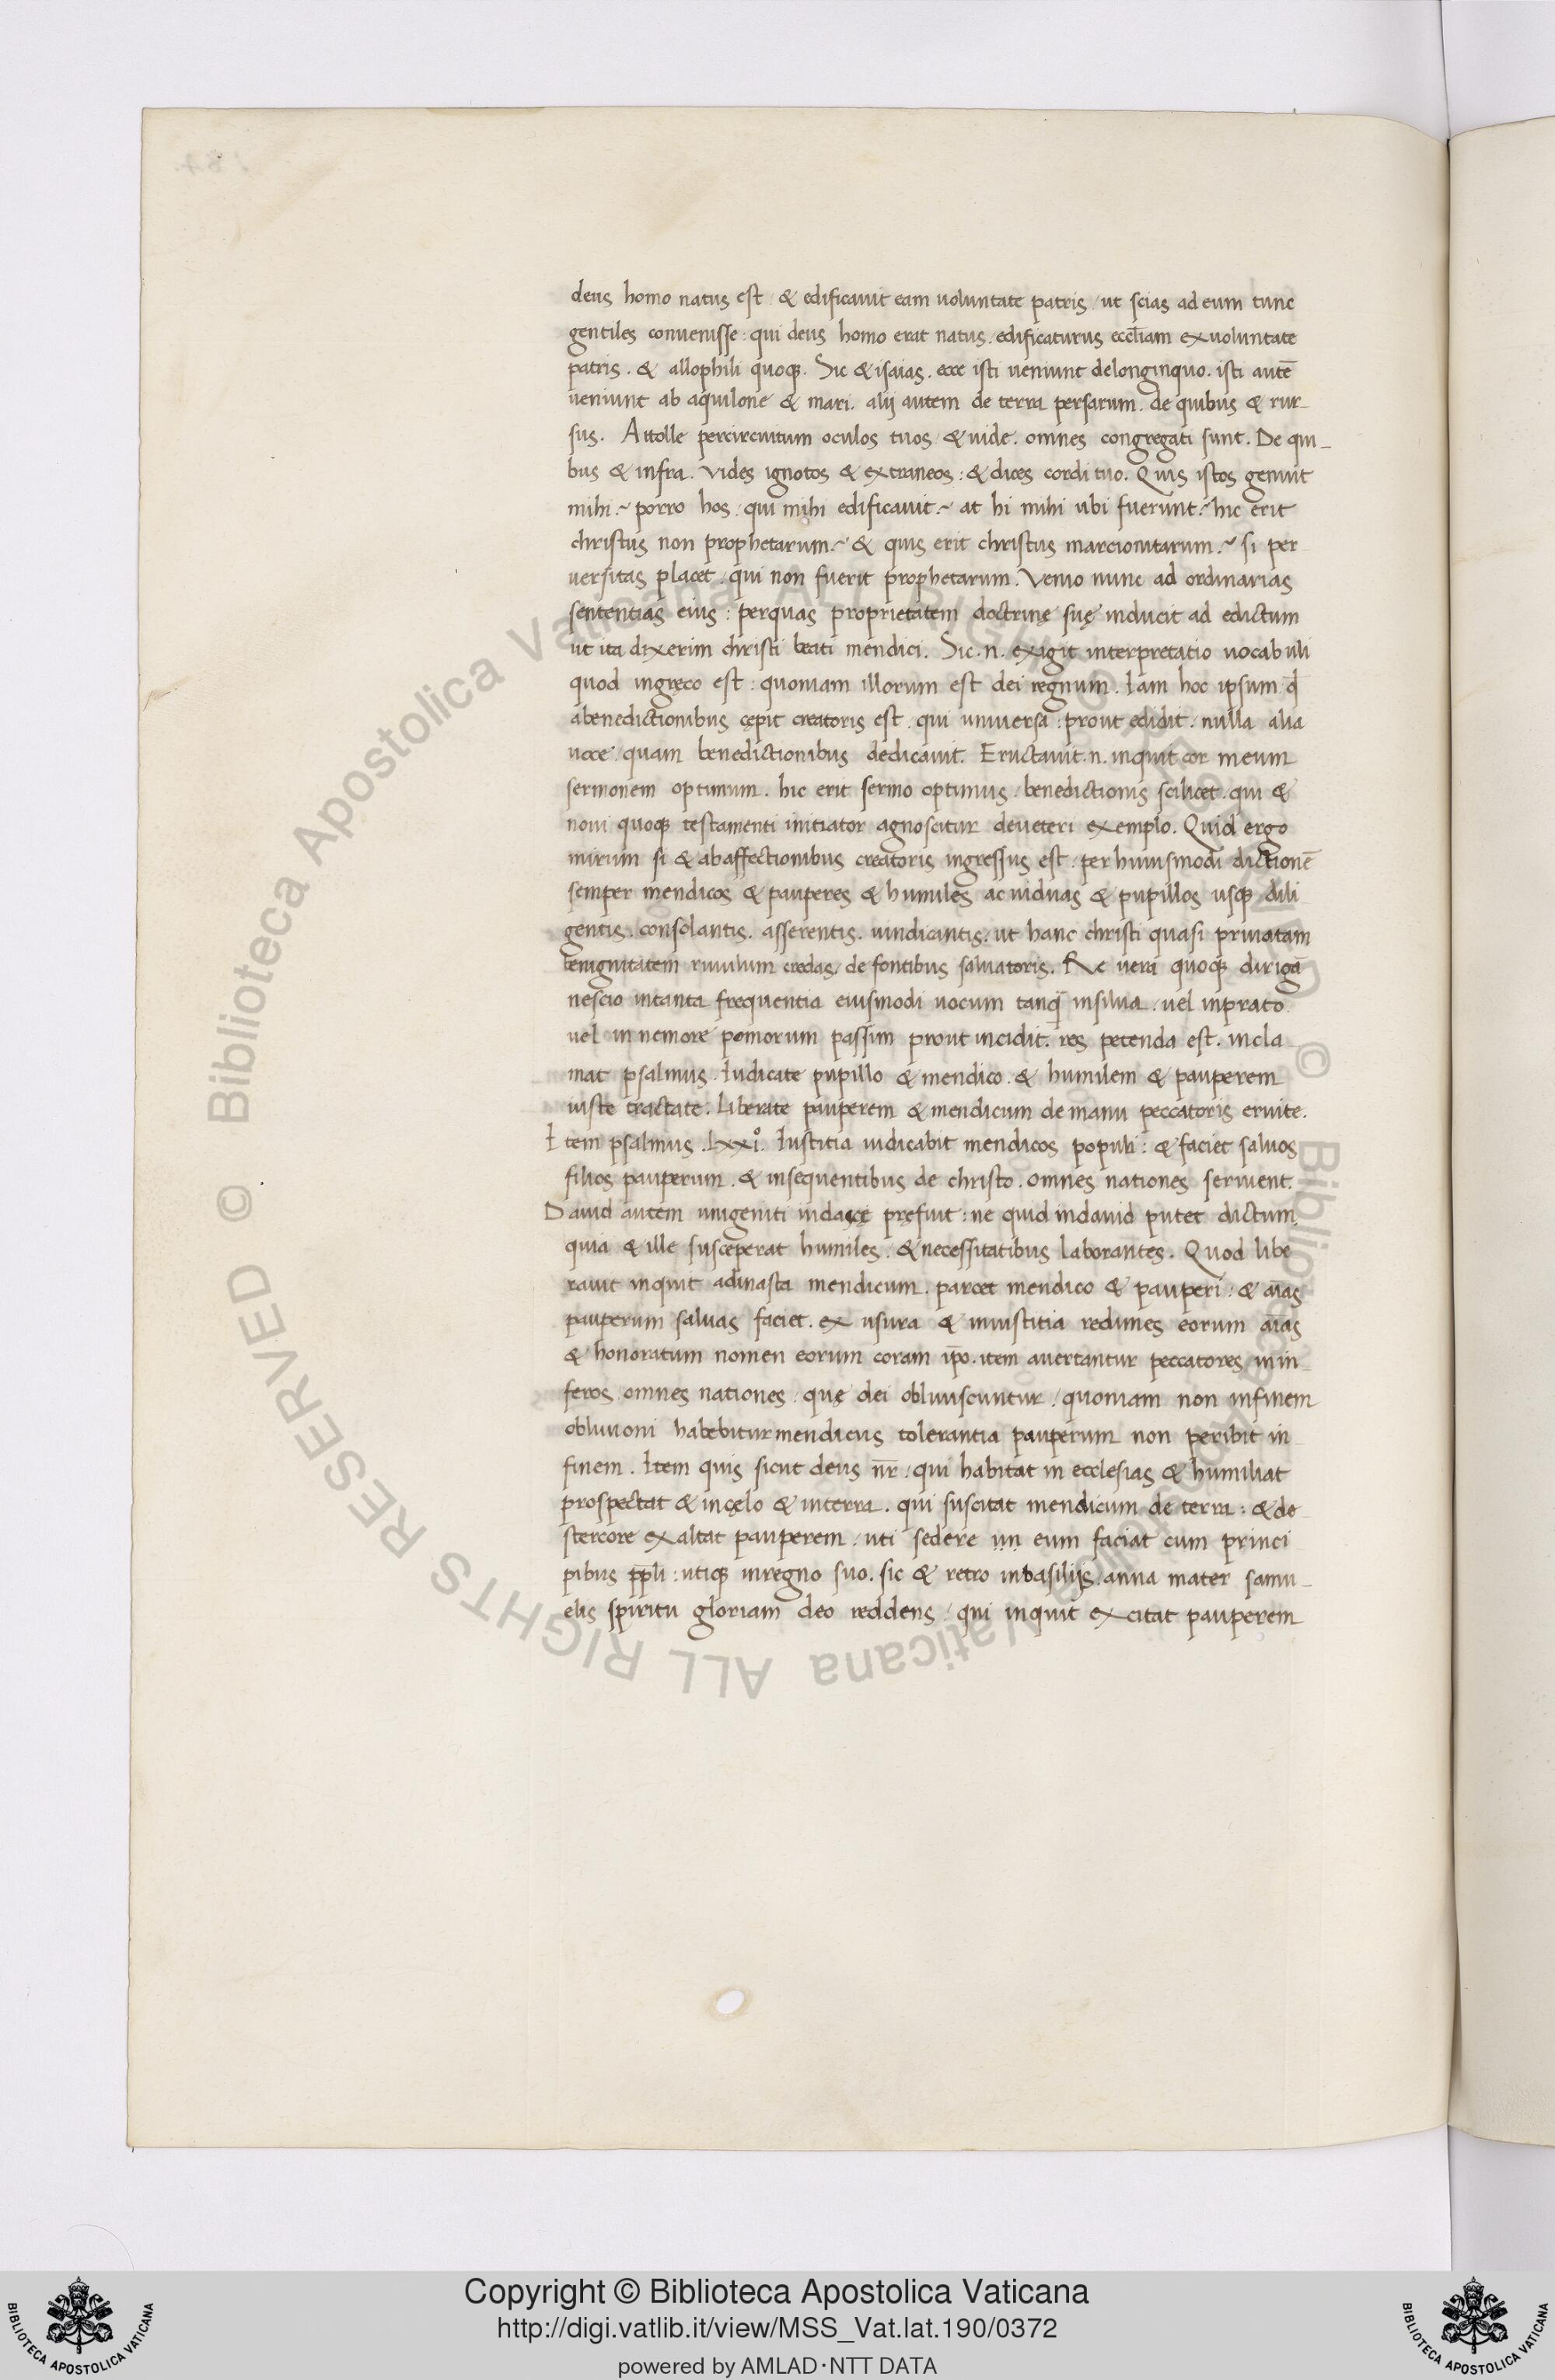 deus homo natus est / & edificauit eam uoluntate patris / ut scias ad eum tunc
gentiles conuenisse : qui deus homo erat natus . edificaturus eccl̄iam ex uoluntate
patris . & allophili quoq; . Sic & isaias . ecce isti ueniunt de longinquo . isti autē
ueniunt ab aquilone & mari . alij autem de terra persarum . de quibus & rur-
sus . Attolle per circuitum oculos tuos & uide . omnes congregati sunt . De qui-
bus & infra . Vides ignotos & extraneos : & dices cordi tuo . Quis istos genuit
mihi .~ porro hos / qui mihi edificauit .~ at hi mihi ubi fuerunt .~ hic erit
christus non prophetarum .~ & quis erit christus marcionitarum .~ si per
uersitas placet / qui non fuerit prophetarum . Venio nunc ad ordinarias
sententias eius : per quas proprietatem doctrinę suę inducit ad edictum
ut ita dixerim christi beati mendici . Sic .n. exigit interpretatio uocabuli
quod in gręco est : quoniam illorum est dei regnum . Iam hoc ipsum q̄
a benedictionibus cępit creatoris est . qui uniuersa : prout edidit . nulla alia
uoce / quam benedictionibus dedicauit . Eructauit .n. inquit cor meum
sermonem optimum . hic erit sermo optimus / benedictionis scilicet . qui &
noui quoq; testamenti initiator agnoscitur de ueteri exemplo . Quid ergo
mirum si & ab affectionibus creatoris ingressus est . per huiusmodi dictionē
semper mendicos & pauperes & humiles ac uiduas & pupillos usq; dili
gentis . consolantis . asserentis . uindicantis . ut hanc christi quasi priuatam
benignitatem riuulum credas / de fontibus saluatoris . Re uera quoq; dirigā
nescio in tanta frequentia eiusmodi uocum tanq̄ in silua . uel in prato
uel in nemore pomorum passim prout incidit . res petenda est . incla-
mat psalmus . Iudicate pupillo & mendico . & humilem & pauperem
iuste tractate . Liberate pauperem & mendicum de manu peccatoris eruite .
Item psalmus .lxxi° . Iustitia iudicabit mendicos populi : & faciet saluos
filios pauperum . & in sequentibus de christo . omnes nationes seruient .
Dauid autem unigeniti iudaicę pręfuit : ne quid in dauid putet dictum
quia & ille susceperat humiles . & necessitatibus laborantes . Quod libe
rauit inquit a dinasta mendicum . parcet mendico & pauperi : & aīas
pauperum saluas faciet . ex usura & iniustitia redimes eorum aīas
& honoratum nomen eorum coram ip̄o . item auertantur peccatores in in-
feros / omnes nationes / quę dei obliuiscuntur / quoniam non in finem
obliuioni habebitur mendicus tolerantia pauperum non peribit in
finem . Item quis sicut deus nr̄ / qui habitat in ecclesias & humiliat
prospectat & in cęlo & in terra . qui suscitat mendicum de terra : & de
stercore exaltat pauperem / uti sedere in eum faciat cum princi
pibus pp̄li : utiq; in regno suo . sic & retro in basilijs . anna mater samu-
elis spiritu gloriam deo reddens / qui inquit excitat pauperem
Copyright © Biblioteca Apostolica Vaticana
http://digi.vatlib.it/view/MSS_Vat.lat.190/0372
powered by AMLAD·NTT DATA
BIBLIOTECA APOSTOLICA VATICANA
BIBLIOTECA APOSTOLICA VATICANA